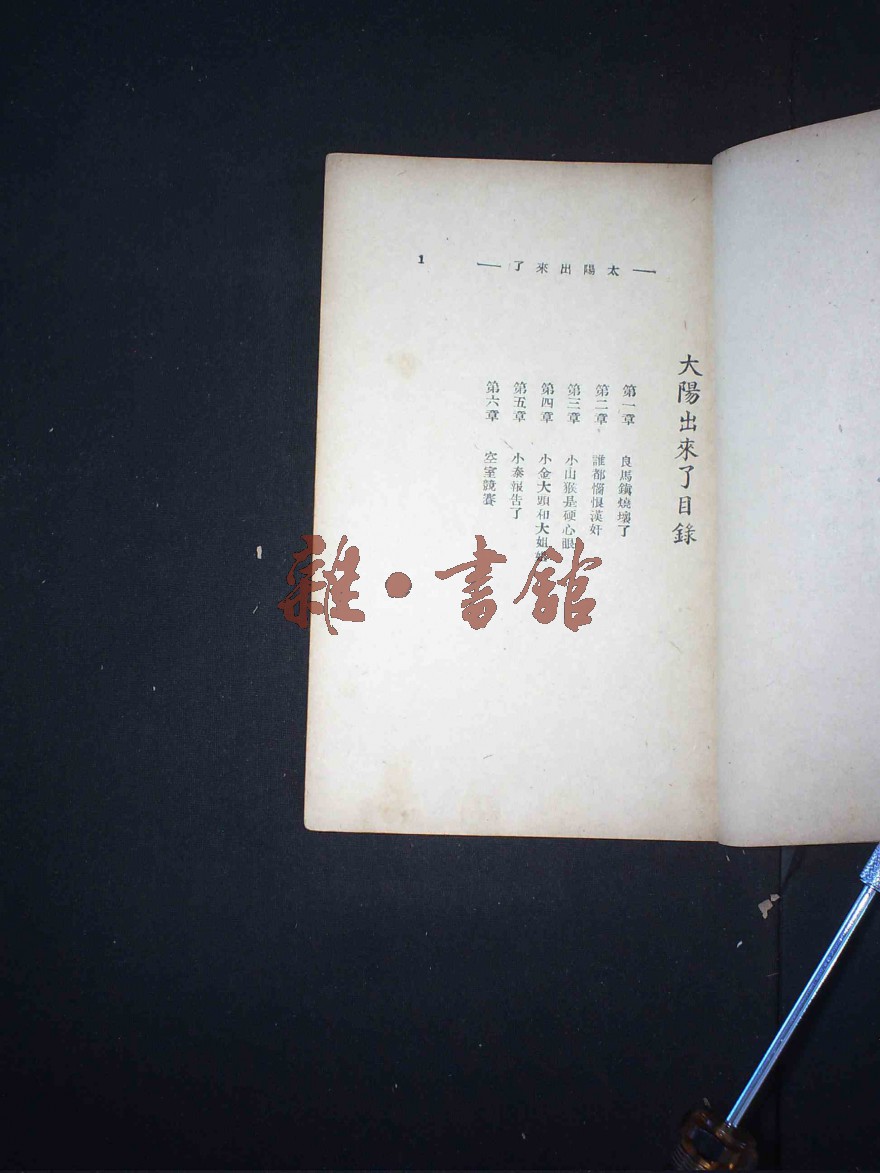 1
— 太陽出來了 —
大陽出來了目錄
第一章 良馬鎭燒壞了
第二章 誰都惱恨漢奸
第三章 小山猴是硬心眼
第四章 小金大頭和大姐
第五章 小泰報告了
第六章 空室競賽
雜·書館